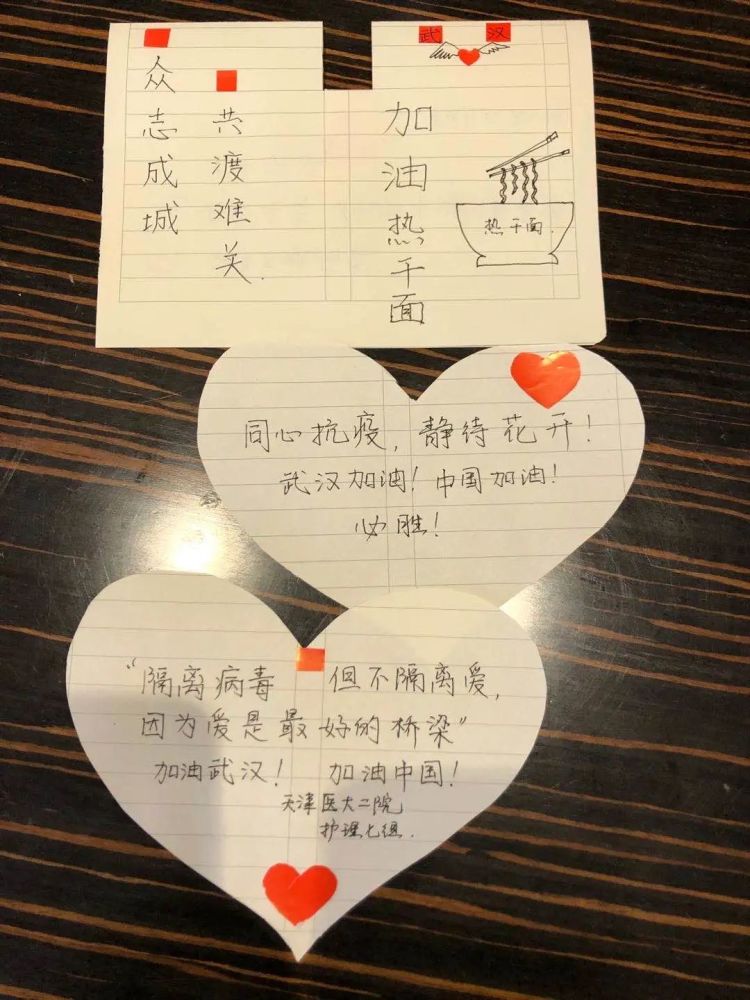 武 汉
众志成城
共渡难关.
加油热干面
热干面.
同心抗疫，静待花开！
武汉加油！中国加油！
必胜！
“隔离病毒 但不隔离爱，
因为爱是最好的桥梁”
加油武汉！ 加油中国！
天津医大二院
护理七组.